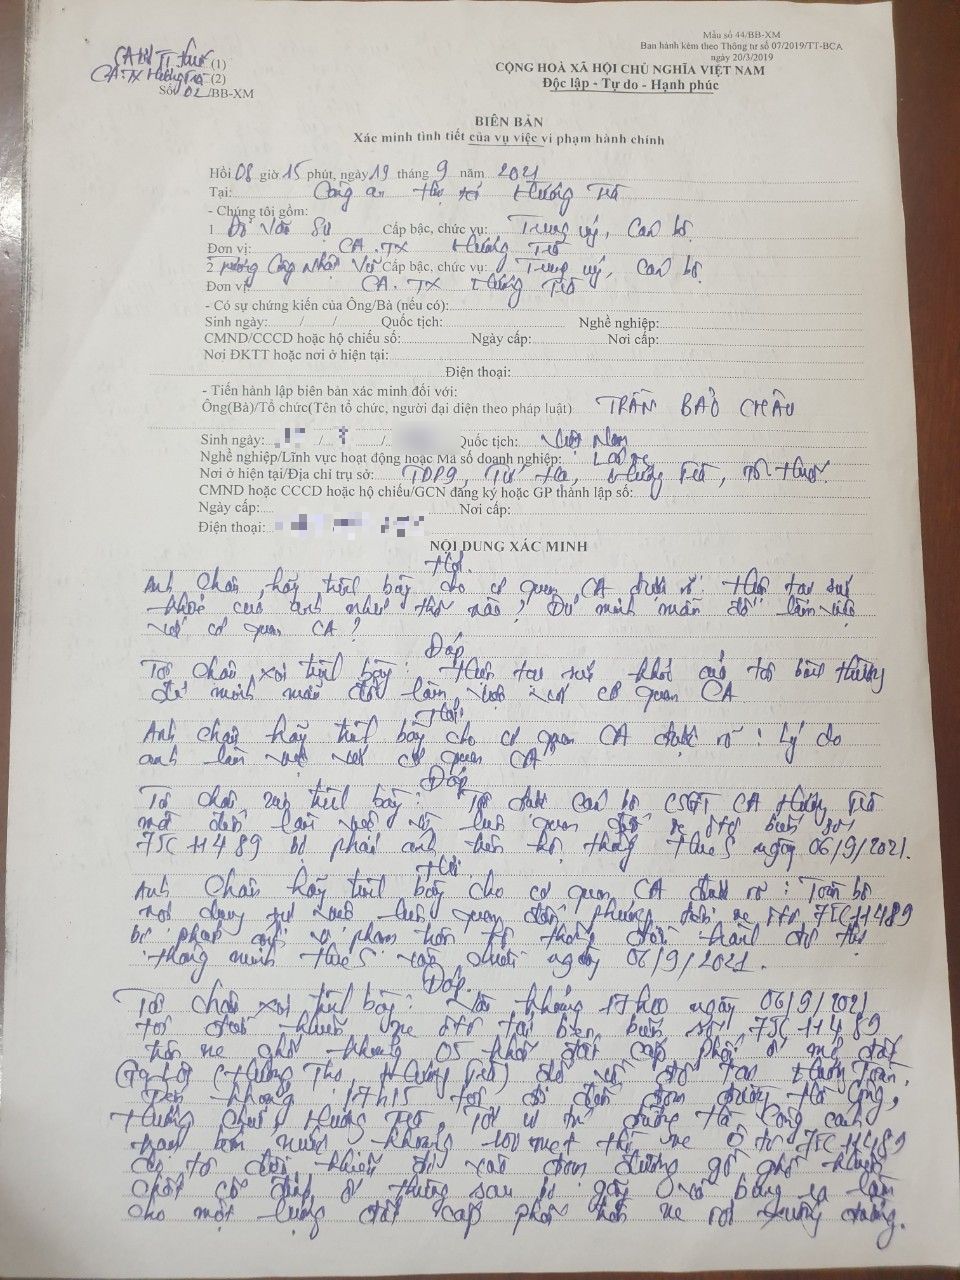 Mẫu số 44/BB-XM
Ban hành kèm theo Thông tư số 07/2019/TT-BCA
ngày 20/3/2019
CA tỉnh TT Huế (1)
CA.TX Hương Trà (2)
Số: 02 /BB-XM
CỘNG HOÀ XÃ HỘI CHỦ NGHĨA VIỆT NAM
Độc lập - Tự do - Hạnh phúc
BIÊN BẢN
Xác minh tình tiết của vụ việc vi phạm hành chính
Hồi 08 giờ 15 phút, ngày 19 tháng 9 năm 2021
Tại: Công an thị xã Hương Trà
- Chúng tôi gồm:
1 Đỗ Văn Sự Cấp bậc, chức vụ: Trung uý, Cán bộ
Đơn vị: CA.TX Hương Trà
2 Trương Công Nhật Vũ Cấp bậc, chức vụ: Trung uý, Cán bộ
Đơn vị: CA.TX Hương Trà
- Có sự chứng kiến của Ông/Bà (nếu có):
Sinh ngày: / / Quốc tịch: Nghề nghiệp:
CMND/CCCD hoặc hộ chiếu số: Ngày cấp: Nơi cấp:
Nơi ĐKTT hoặc nơi ở hiện tại:
Điện thoại:
- Tiến hành lập biên bản xác minh đối với:
Ông(Bà)/Tổ chức(Tên tổ chức, người đại diện theo pháp luật) TRẦN BẢO CHÂU
Sinh ngày: / / Quốc tịch: Việt Nam
Nghề nghiệp/Lĩnh vực hoạt động hoặc Mã số doanh nghiệp: Lái xe
Nơi ở hiện tại/Địa chỉ trụ sở: TDP9, Tứ Hạ, Hương Trà, TT Huế.
CMND hoặc CCCD hoặc hộ chiếu/GCN đăng ký hoặc GP thành lập số:
Ngày cấp: Nơi cấp:
Điện thoại:
NỘI DUNG XÁC MINH
Hỏi.
Anh Châu, hãy trình bày cho cơ quan CA được rõ: Hiện tại sức
khoẻ của anh như thế nào? Đủ minh mẫn để làm việc
với cơ quan CA?
Đáp
Tôi Châu xin trình bày: Hiện tại sức khoẻ của tôi bình thường
đủ minh mẫn để làm việc với cơ quan CA
Hỏi
Anh Châu hãy trình bày cho cơ quan CA được rõ: Lý do
anh làm việc với cơ quan CA
Đáp
Tôi Châu xin trình bày: Tôi được cán bộ CSGT CA Hương Trà
mời đến làm việc vì liên quan đến xe ôtô biển số
75C 11489 bị phản ánh trên hệ thống HueS ngày 06/9/2021.
Hỏi
Anh Châu hãy trình bày cho cơ quan CA được rõ: Toàn bộ
nội dung sự việc liên quan đến phương tiện xe ôtô 75C11489
bị phản ánh vi phạm trên hệ thống điều hành đô thị
thông minh HueS vào chiều ngày 06/9/2021.
Đáp.
Tôi Châu xin trình bày: Vào khoảng 17h10 ngày 06/9/2021
tôi điều khiển xe ôtô tải ben biển số 75C 11489
trên xe chở khoảng 05 khối đất cấp phối ở mỏ đất
(Hương Thọ, Hương Trà) để về đổ tại Hương Toàn.
Đến khoảng 17h15 tôi đi đến đoạn đường Hà Công,
Hương Chữ, Hương Trà, Tôi đường Hà Công cách
trạm bơm nước khoảng 100 mét thì xe ô tô 75C 11489
do tôi điều khiển đi vào đoạn đường gồ ghề khiến
chốt cố định ở thùng sau bị gãy và bung ra làm
cho một lượng đất cấp phối trên xe rơi xuống đường.